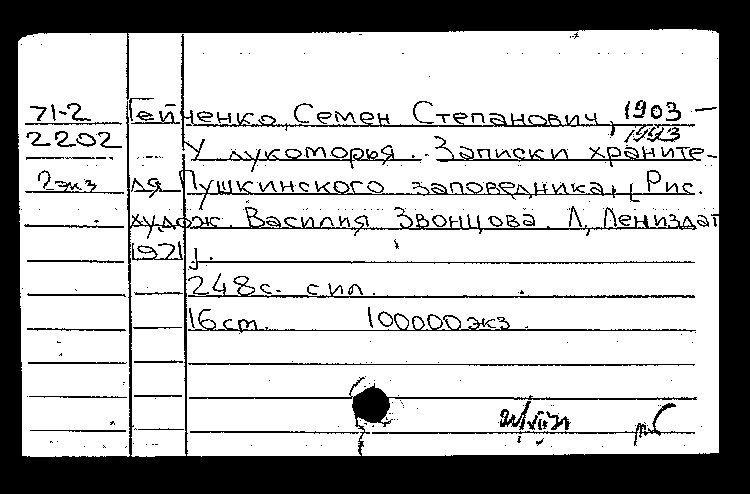 71-2 Гейченко, Семен Степанович, 1903 –
2202 1993
У лукоморья. Записки храните-
2 экз ля Пушкинского заповедника. [Рис.
худож. Василия Звонцова. Л, Лениздат
1971].
248с. с ил.
16 ст. 100000 экз